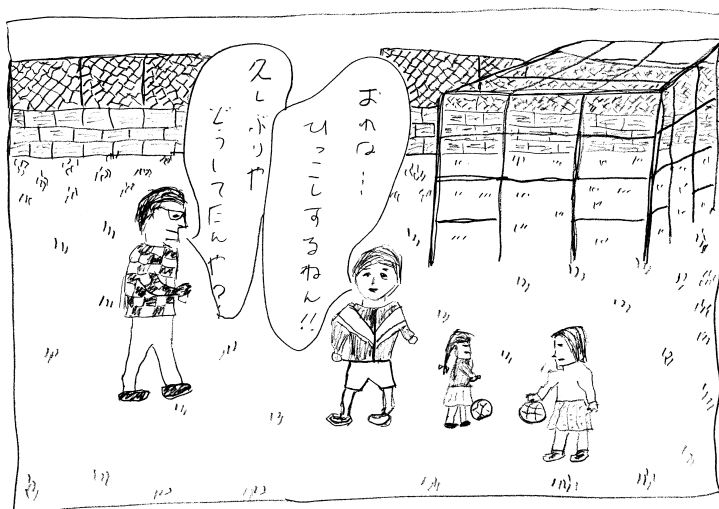 おれは…
ひっこしするねん!!
久しぶりや
どうしてたんや?